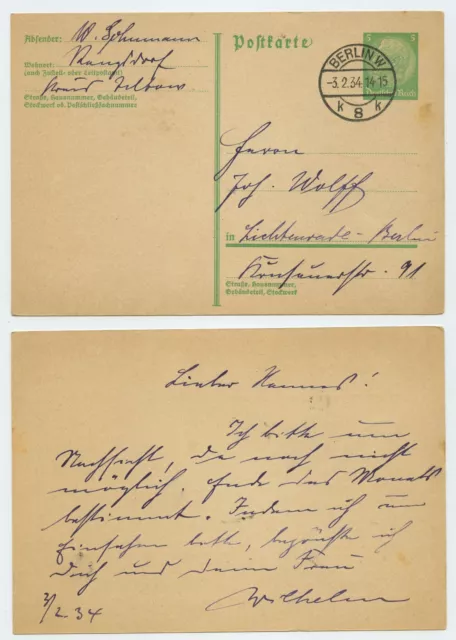 Absender: W. Lehmann
Rangsdorf
Wohnort:
(auch Zustell- oder Leitpostamt)
Kreis Teltow
Straße, Hausnummer, Gebäudeteil,
Stockwerk od. Postschließfachnummer
Postkarte
5
5
Deutsches Reich
BERLIN W
-3.2.34.14-15
k 8 k
Herrn
Joh. Wolff
in Lichtenrade-Berlin
91
Straße, Hausnummer,
Gebäudeteil, Stockwerk
Lieber Hannes!
Ich bitte um
Nachsicht, da noch nicht
möglich. Ende des Monats
bestimmt. Indem ich um
Einsehen bitte, begrüße ich
Dich und deine Frau
Wilhelm
3/2.34